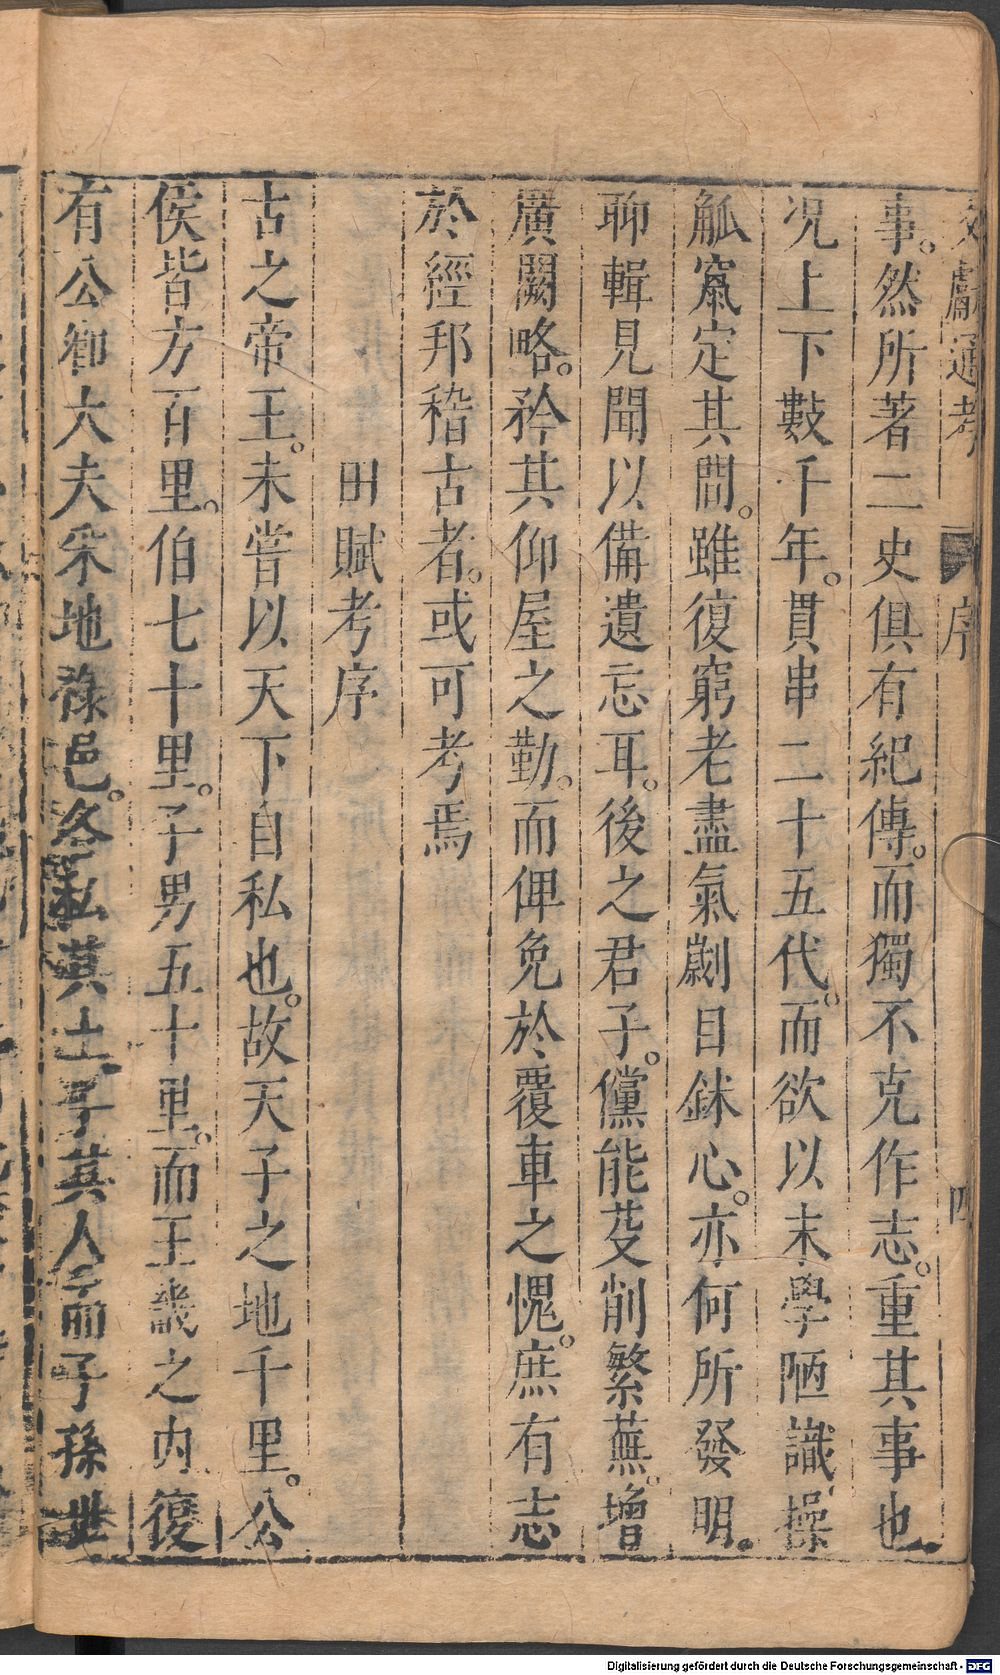 文獻通考 序 四
事。然所著二史俱有紀傳。而獨不克作志。重其事也
况上下數千年。貫串二十五代。而欲以末學陋識。操
觚竄定其間。雖復窮老盡氣劌目鉥心。亦何所發明。
聊輯見聞以備遺忘耳。後之君子。儻能芟削繁蕪。增
廣闕略。矜其仰屋之勤。而俾免於覆車之愧。庶有志
於經邦稽古者。或可考焉
田賦考序
古之帝王。未嘗以天下自私也。故天子之地千里。公
侯皆方百里。伯七十里。子男五十里。而王畿之內復
有公卿大夫采地祿邑。各私其土子其人而子孫世
Digitalisierung gefördert durch die Deutsche Forschungsgemeinschaft - DFG